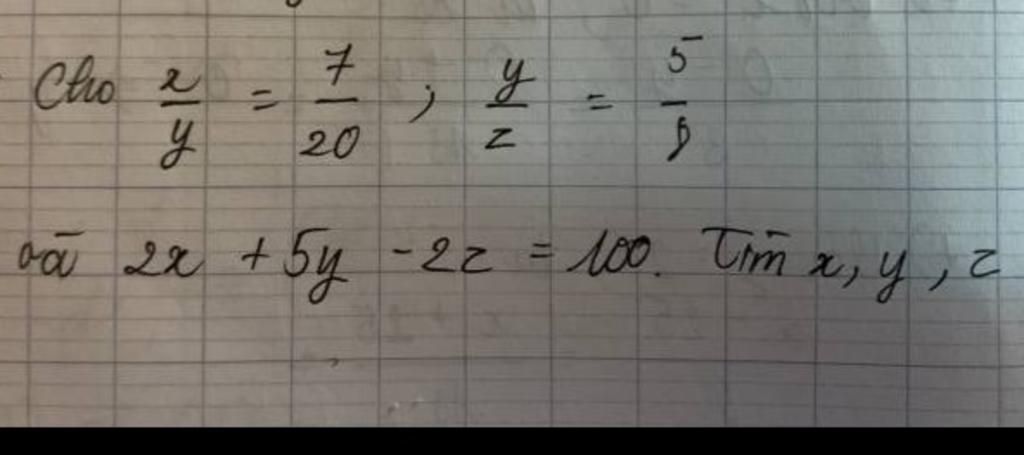 Cho x/y = 7/20 ; y/z = 5/8
và 2x + 5y - 2z = 100. Tìm x, y, z